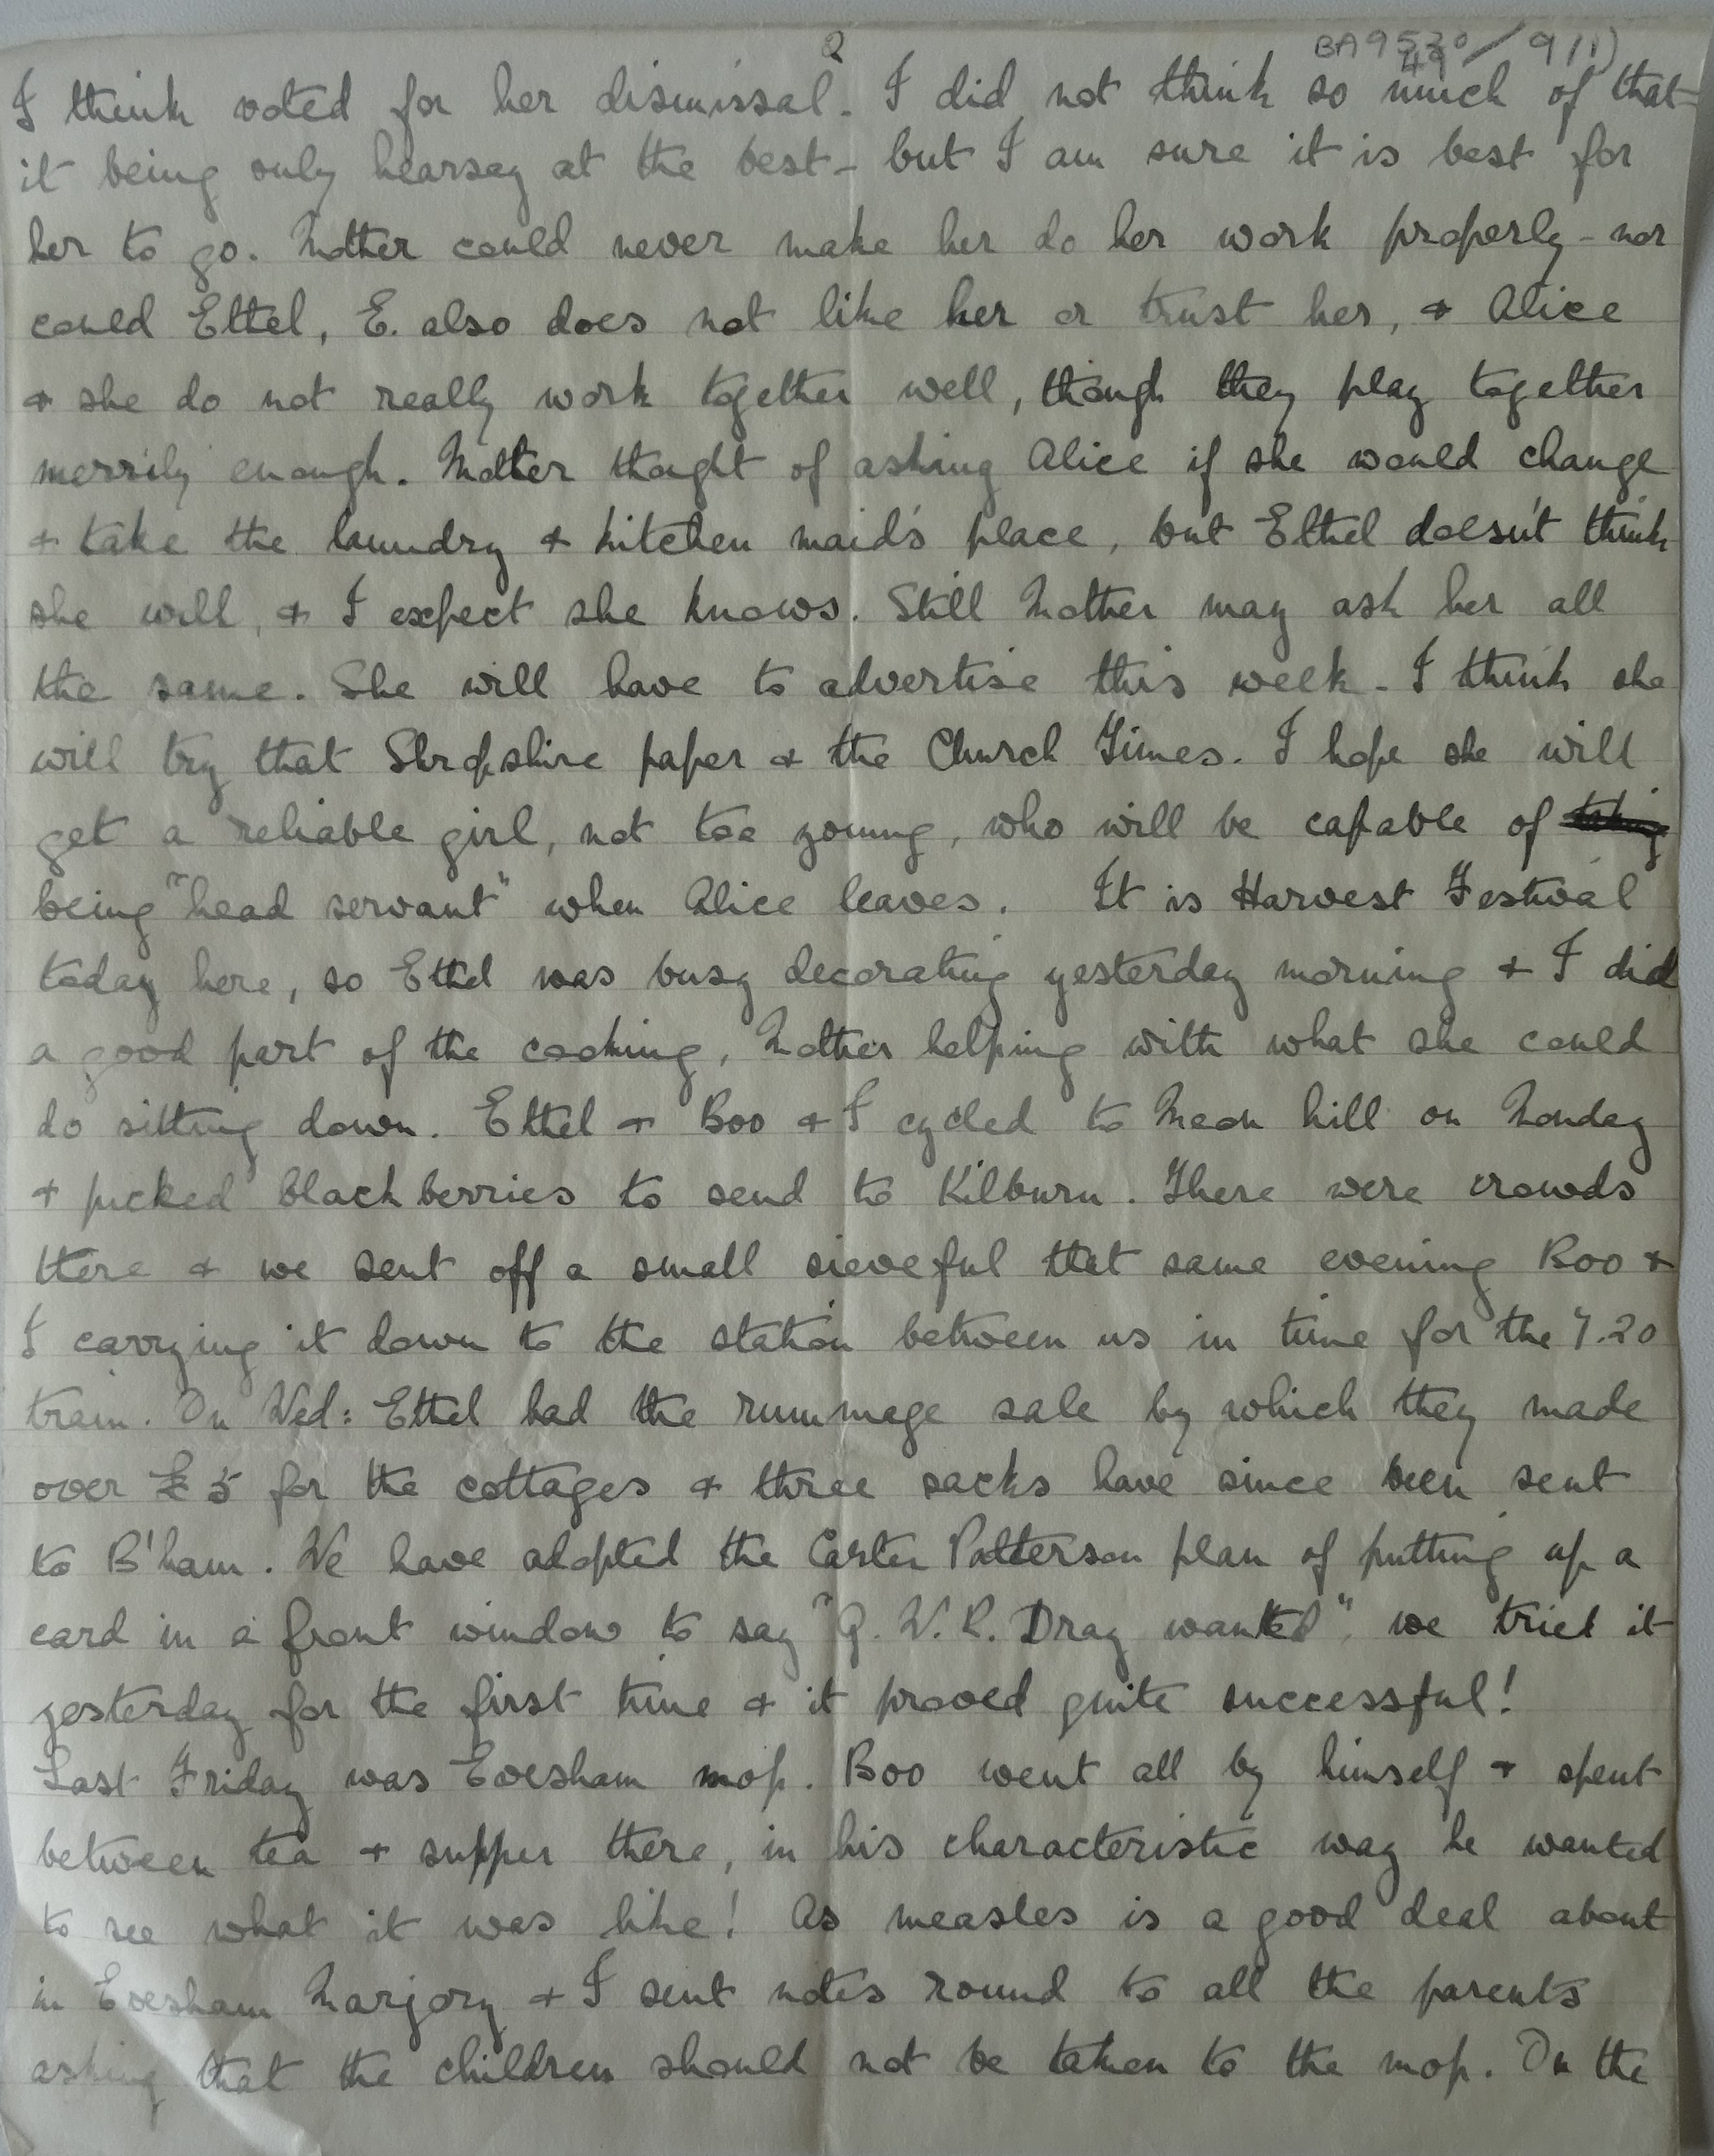 2
BA9520/9(1)
49
I think voted for her dismissal. I did not think so much of that
it being only hearsay at the best - but I am sure it is best for
her to go. Mother could never make her do her work properly - nor
could Ethel, E. also does not like her or trust her, & Alice
& she do not really work together well, though they play together
merrily enough. Mother thought of asking Alice if she would change
& take the laundry & kitchen maid's place, but Ethel doesn't think
she will, & I expect she knows. Still Mother may ask her all
the same. She will have to advertise this week - I think she
will try that Shropshire paper & the Church Times. I hope she will
get a reliable girl, not too young, who will be capable of
being "head servant" when Alice leaves. It is Harvest Festival
today here, so Ethel was busy decorating yesterday morning & I did
a good part of the cooking, Mother helping with what she could
do sitting down. Ethel & Boo & I cycled to Meon hill on Monday
& picked blackberries to send to Kilburn. There were crowds
there & we sent off a small sieveful that same evening Boo &
I carrying it down to the station between us in time for the 7.20
train. On Wed: Ethel had the rummage sale by which they made
over £5 for the cottages & three sacks have since been sent
to B'ham. We have adopted the Carter Patterson plan of putting up a
card in a front window to say "G.W.R. Dray wanted", we tried it
yesterday for the first time & it proved quite successful!
Last Friday was Evesham mop. Boo went all by himself & spent
between tea & supper there, in his characteristic way he wanted
to see what it was like! As measles is a good deal about
in Evesham Marjory & I sent notes round to all the parents
asking that the children should not be taken to the mop. On the